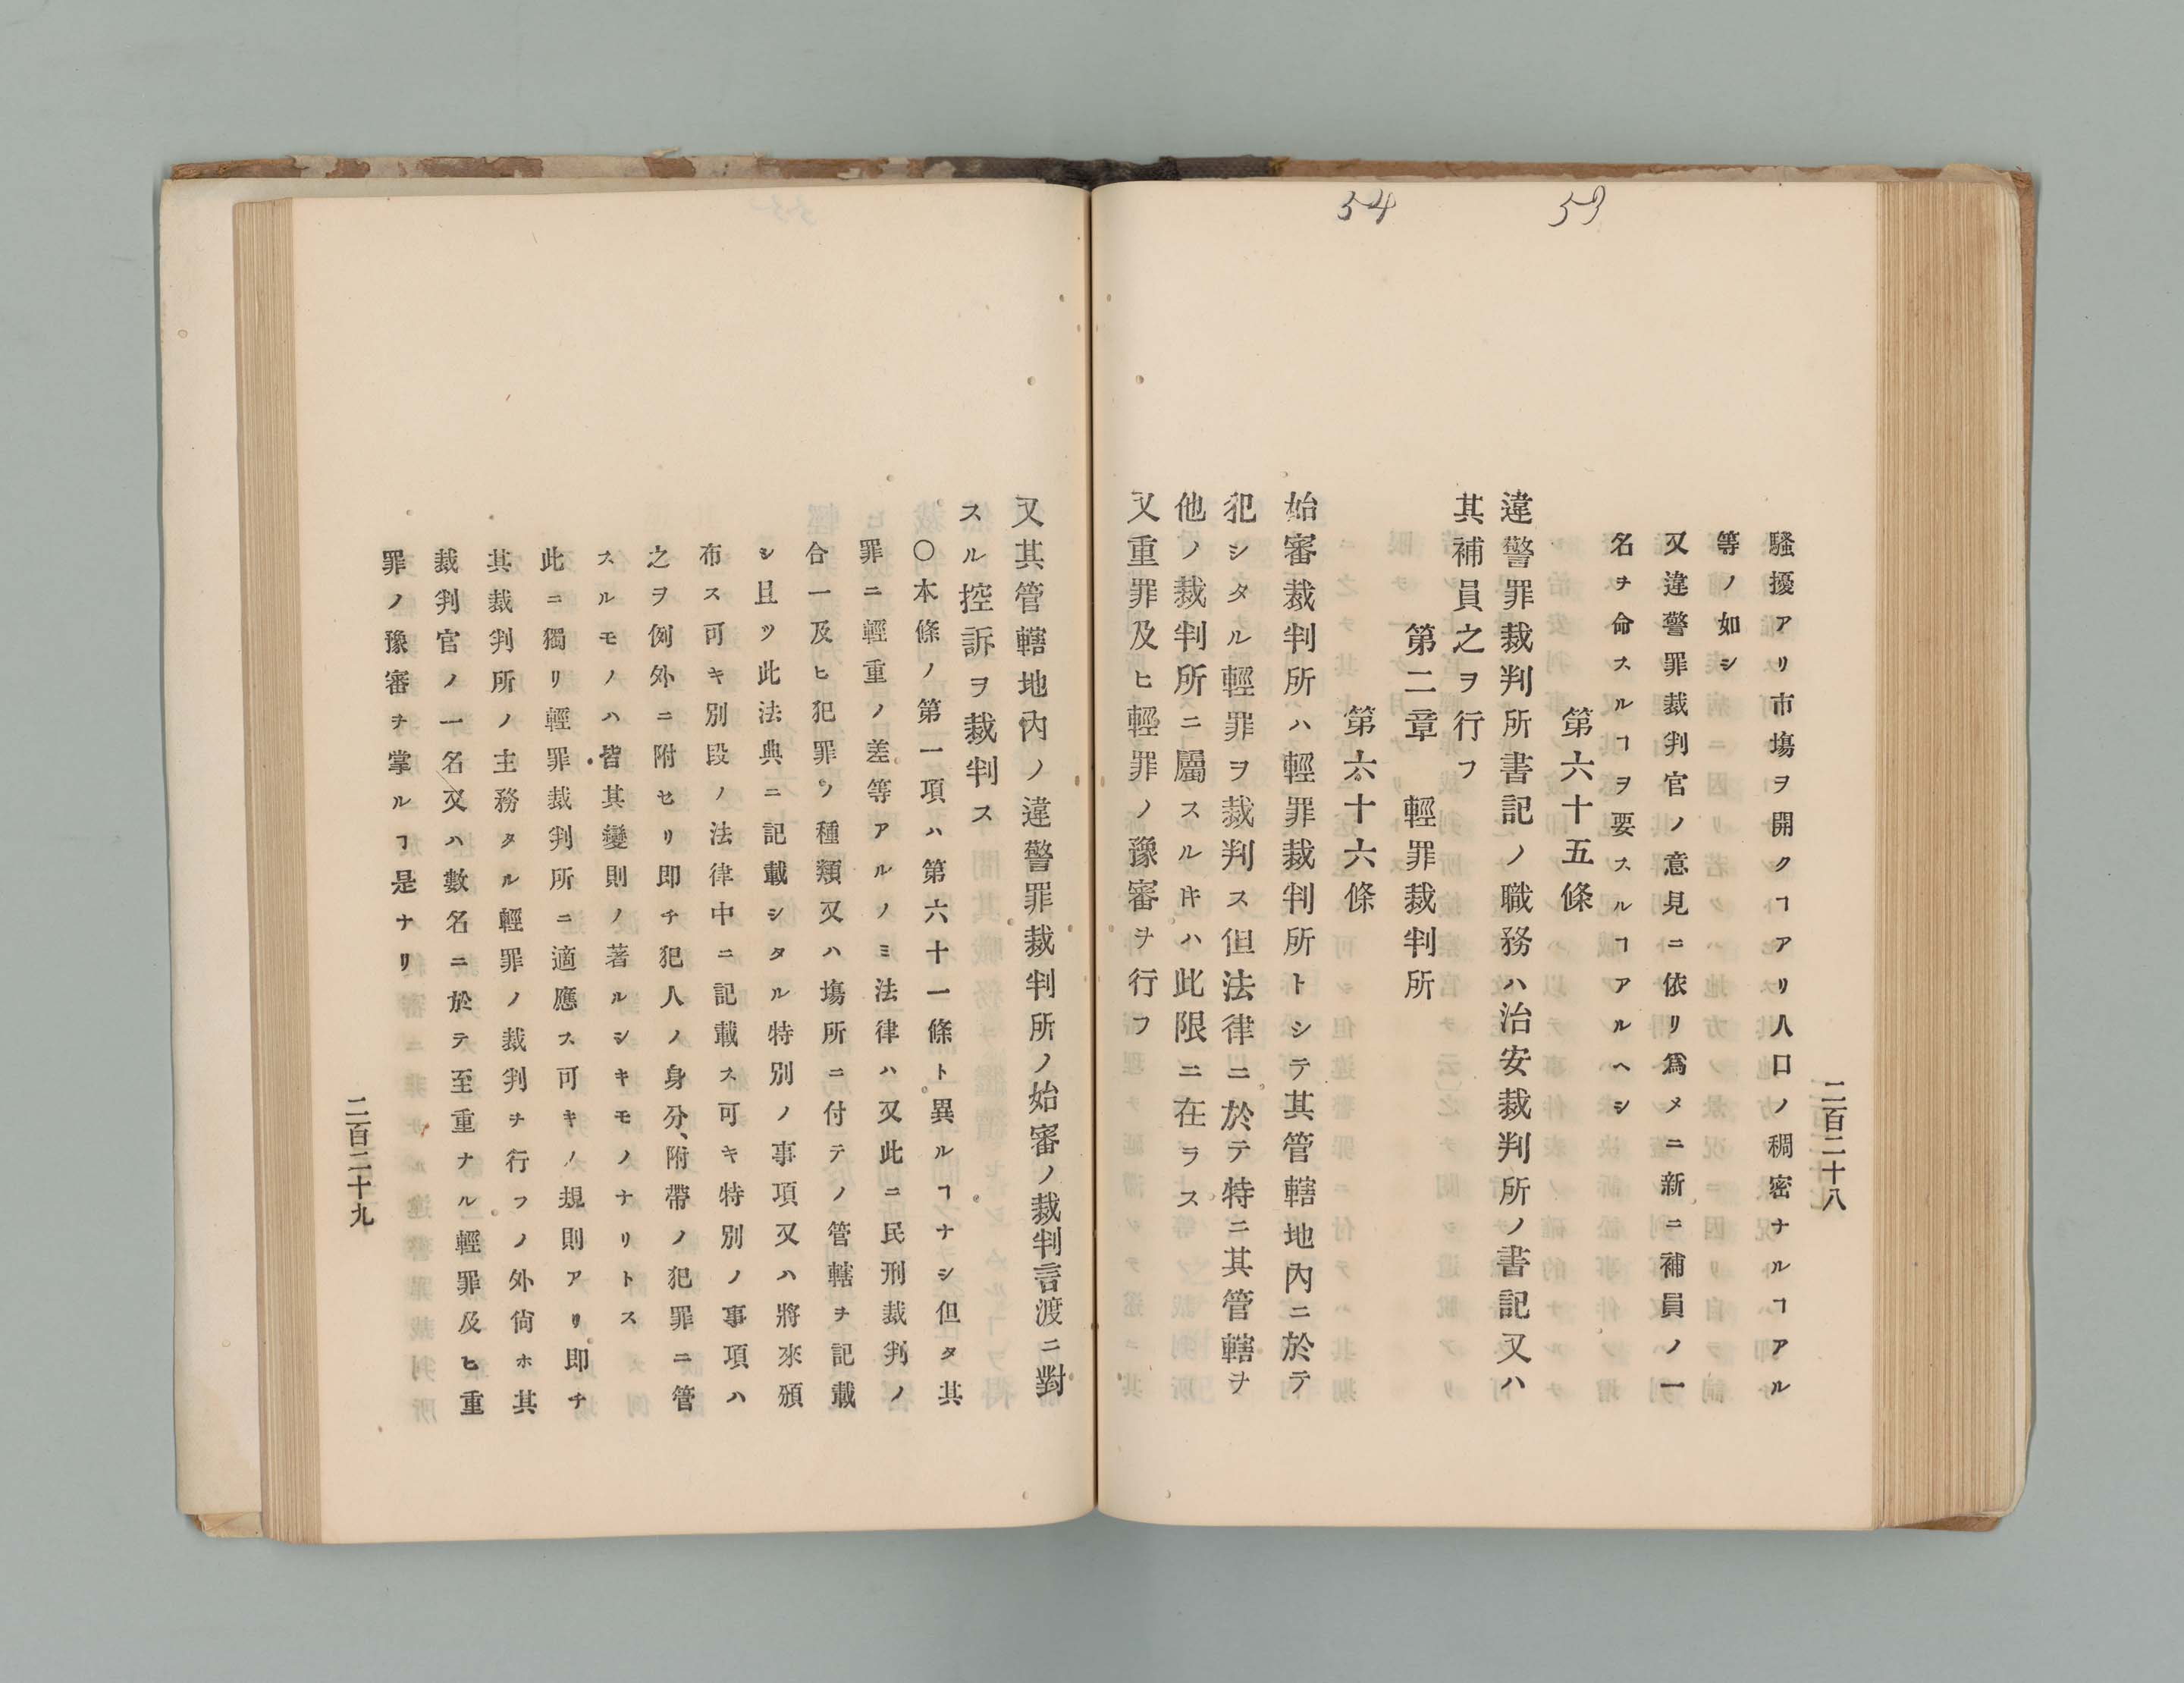 53
54
二百二十八
騷擾アリ市場ヲ開クヿアリ人口ノ稠密ナルヿアル
等ノ如シ
又違警罪裁判官ノ意見ニ依リ爲メニ新ニ補員ノ一
名ヲ命スルヿヲ要スルヿアルヘシ
第六十五條
違警罪裁判所書記ノ職務ハ治安裁判所ノ書記又ハ
其補員之ヲ行フ
第二章 輕罪裁判所
第六十六條
始審裁判所ハ輕罪裁判所トシテ其管轄地內ニ於テ
犯シタル輕罪ヲ裁判ス但法律ニ於テ特ニ其管轄ヲ
他ノ裁判所ニ屬スル𪜈ハ此限ニ在ラス
又重罪及ヒ輕罪ノ豫審ヲ行フ
又其管轄地內ノ違警罪裁判所ノ始審ノ裁判言渡ニ對
スル控訴ヲ裁判ス
〇本條ノ第一項ハ第六十一條ト異ルヿナシ但タ其
罪ニ輕重ノ差等アルノミ法律ハ又此ニ民刑裁判ノ
合一及ヒ犯罪ノ種類又ハ塲所ニ付テノ管轄ヲ記載
シ且ツ此法典ニ記載シタル特別ノ事項又ハ將來頒
布ス可キ別段ノ法律中ニ記載ス可キ特別ノ事項ハ
之ヲ例外ニ附セリ卽チ犯人ノ身分、附帶ノ犯罪ニ管
スルモノハ皆其變則ノ著ルシキモノナリトス
此ニ獨リ輕罪裁判所ニ適應ス可キノ規則アリ卽チ
其裁判所ノ主務タル輕罪ノ裁判ヲ行フノ外尙ホ其
裁判官ノ一名又ハ數名ニ於テ至重ナル輕罪及ヒ重
罪ノ豫審ヲ掌ルヿ是ナリ
二百二十九